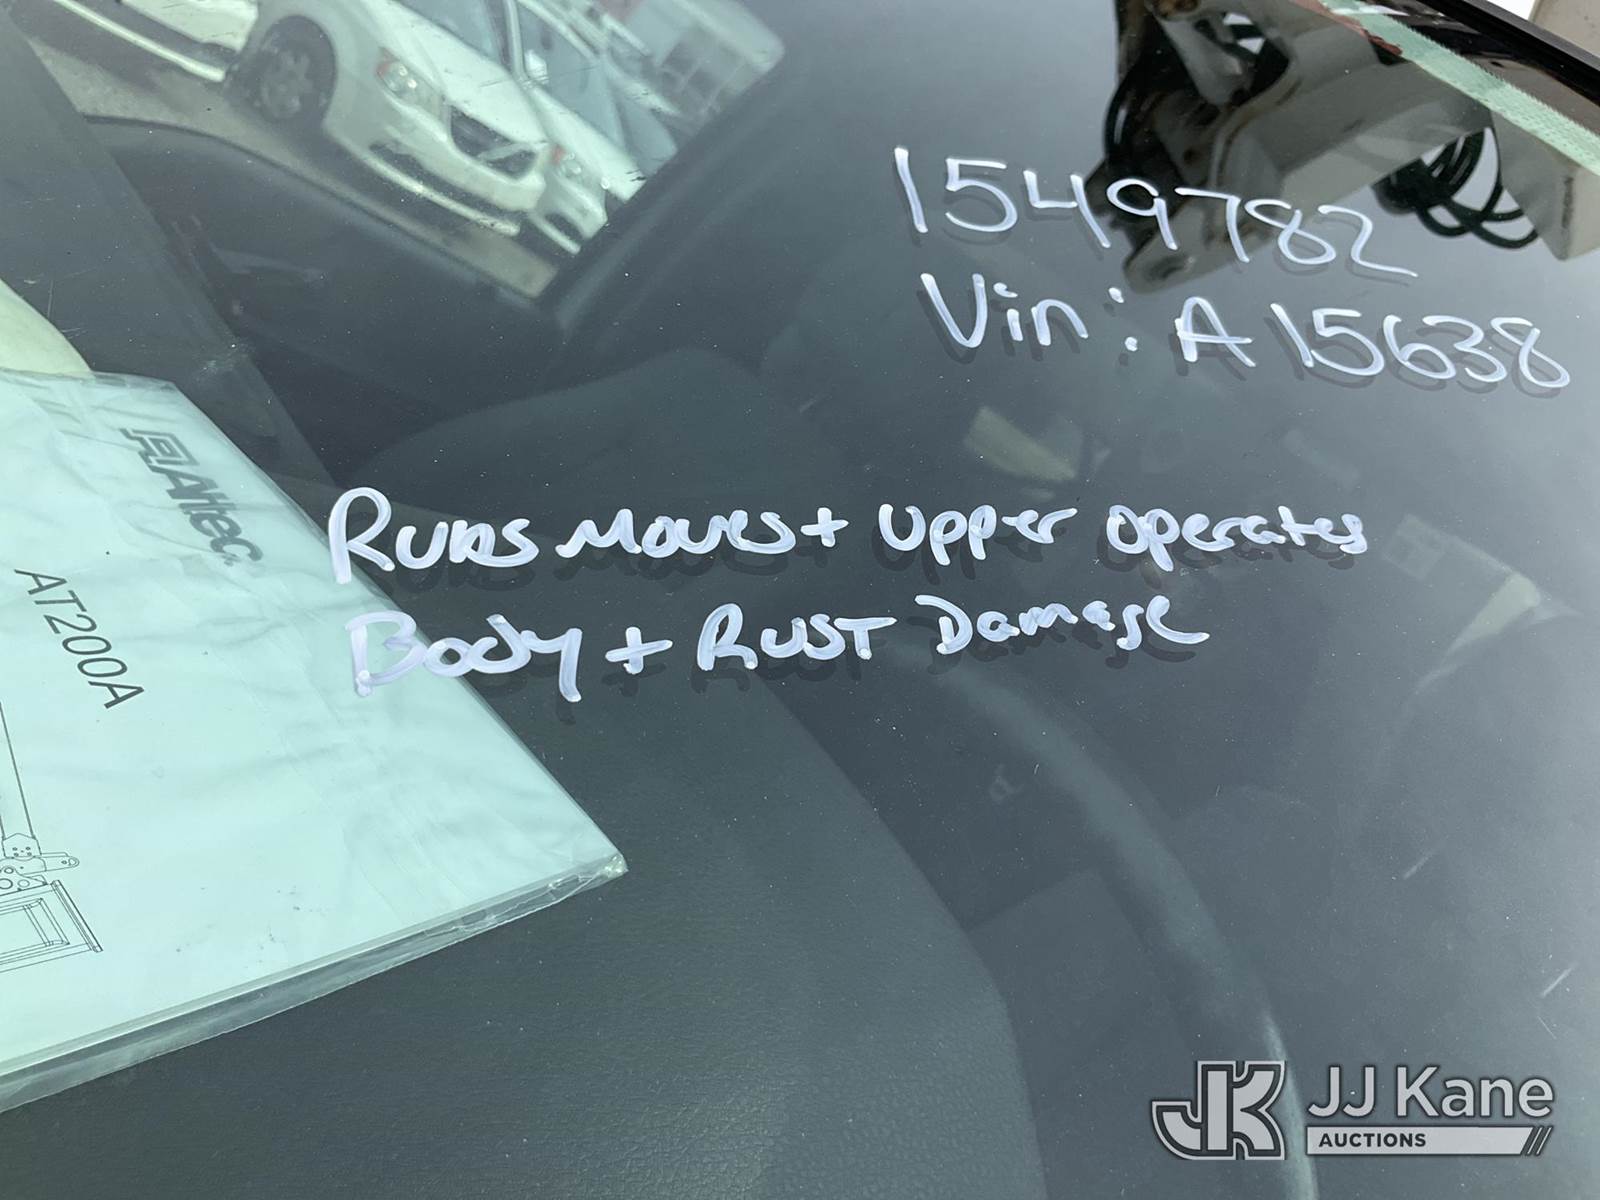 1549782
Vin: A15638
Runs Moves + Upper operates
Body + RUST Damage
Altec
AT200A
JJ Kane
AUCTIONS